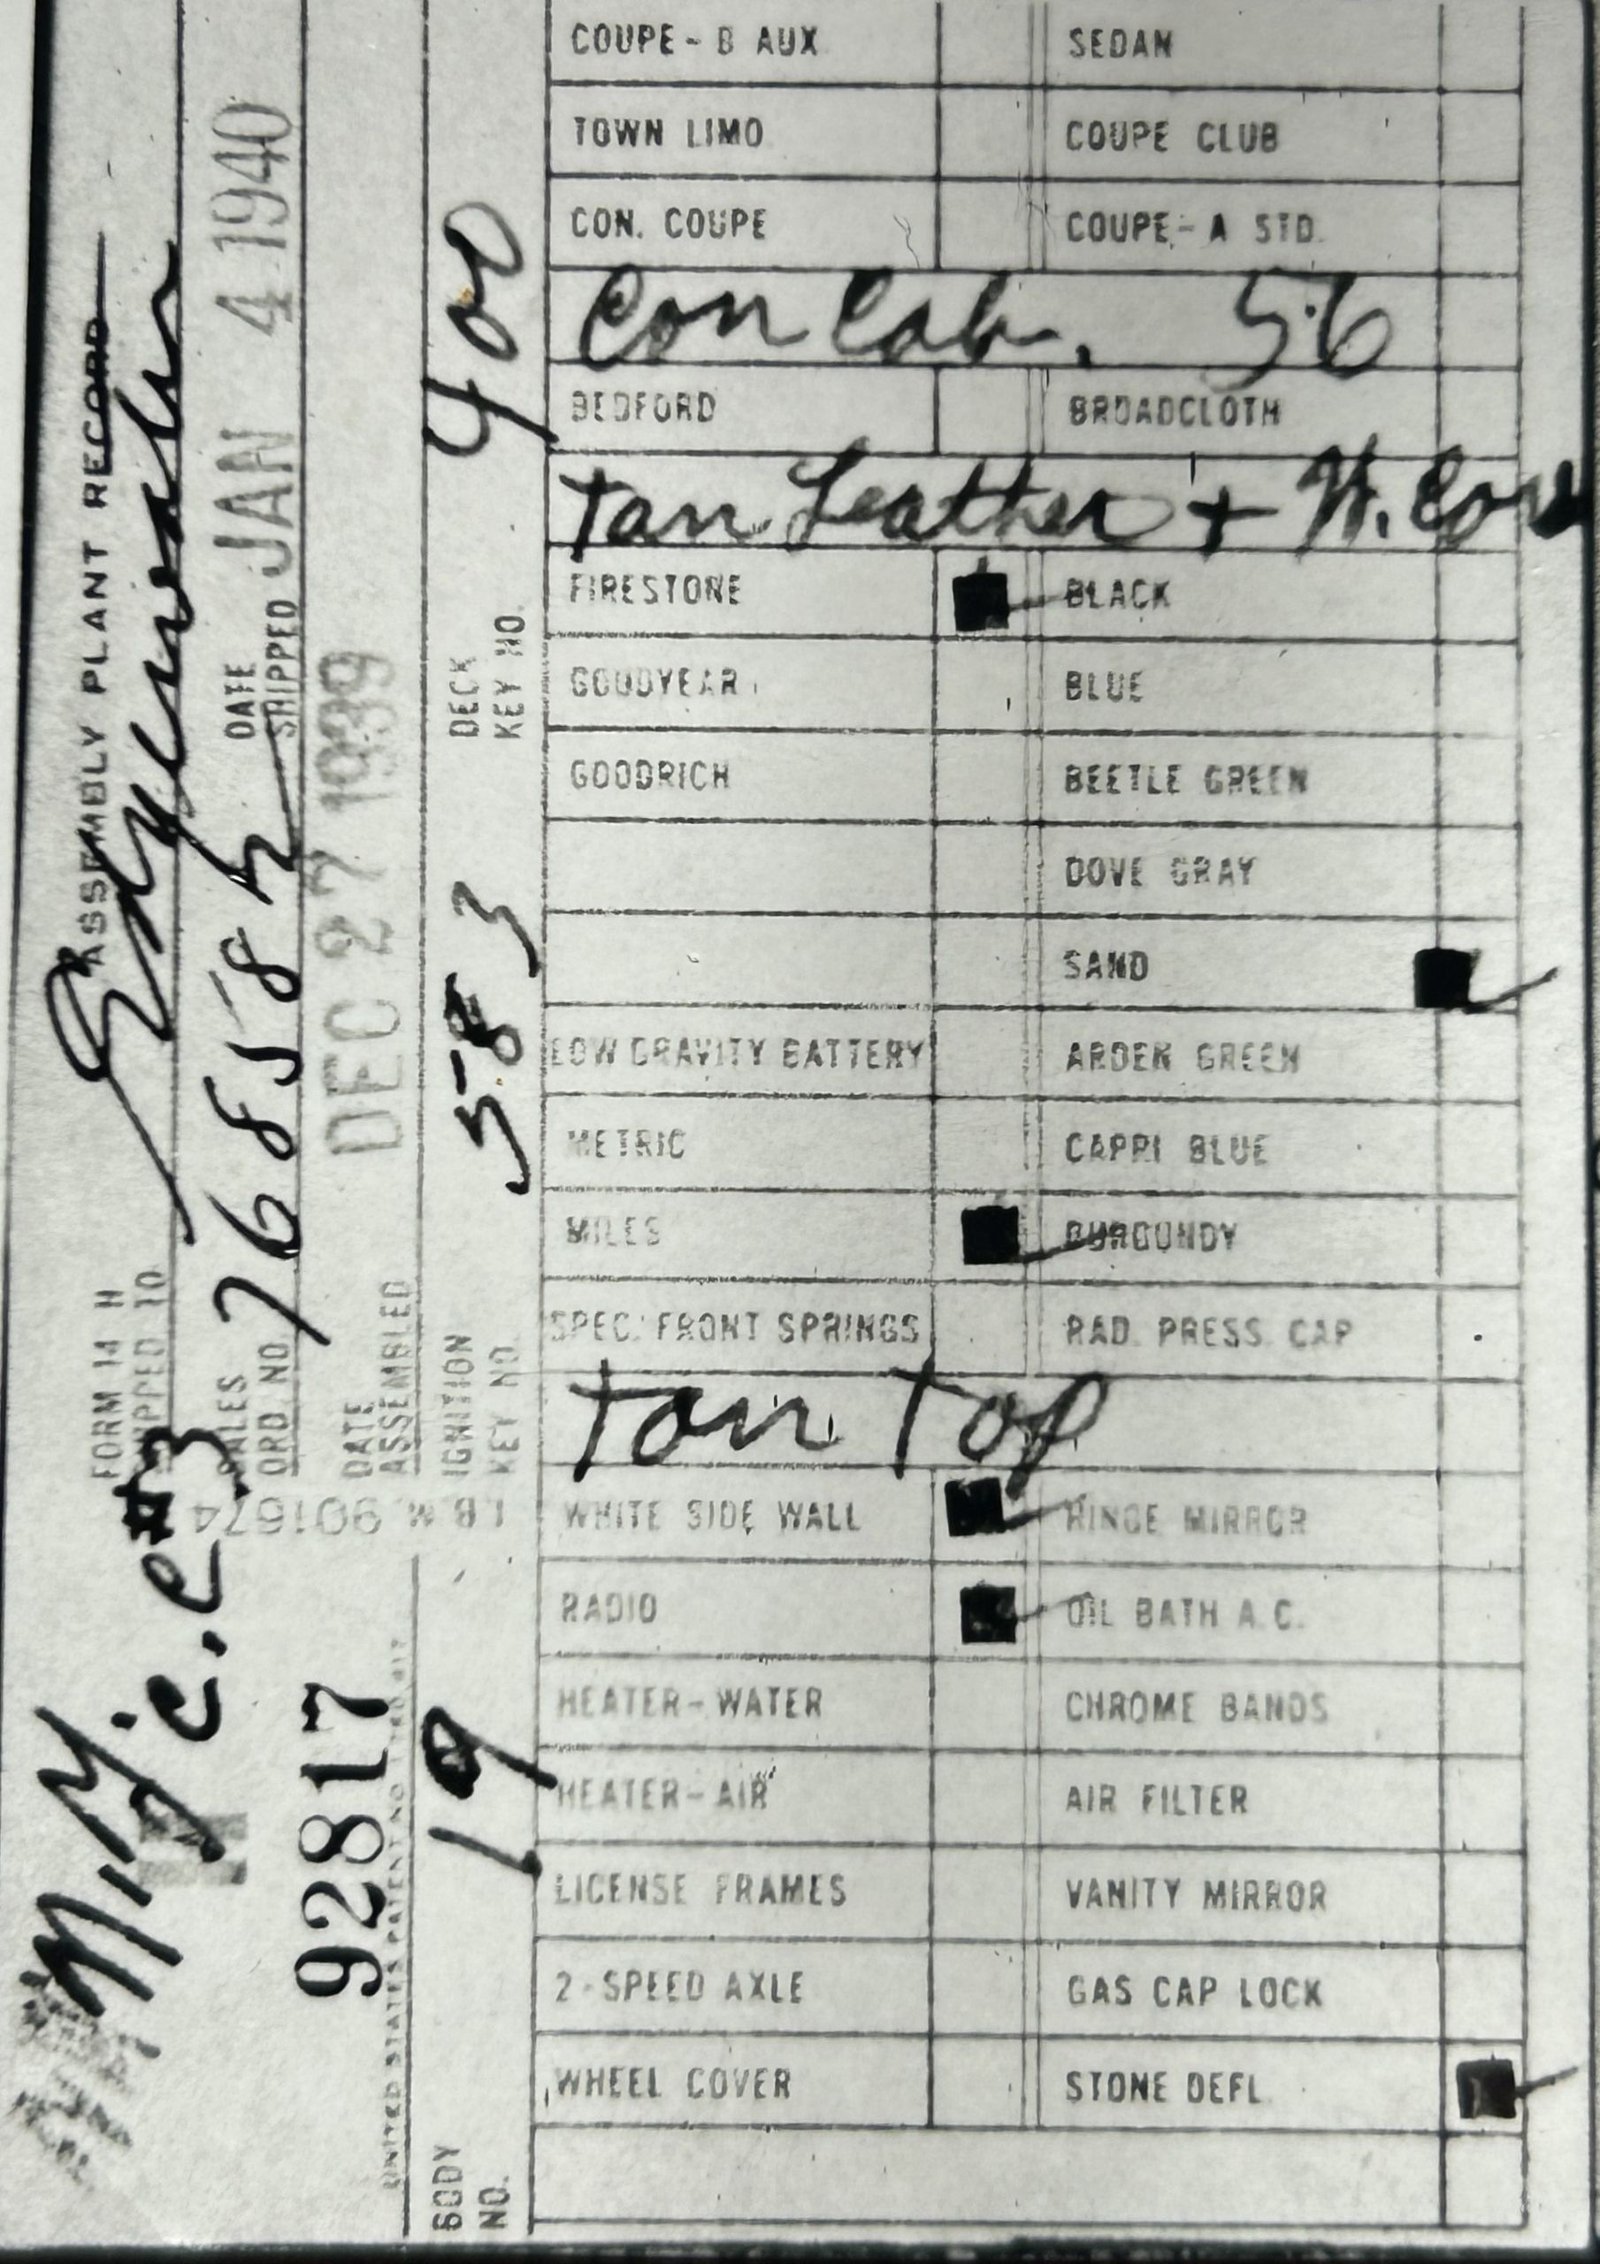 ASSEMBLY PLANT RECORD
FORM 14 H
SHIPPED TO
Edgewater
M.Y.C. #3
SALES ORD. NO. 76858
DATE SHIPPED JAN 4 1940
92817
DATE ASSEMBLED DEC 27 1939
I.B.M. 901674
UNITED STATES PATENT NO.
BODY NO. 19
IGNITION KEY NO. 583
DECK KEY NO. 400
COUPE-B AUX SEDAN
TOWN LIMO COUPE CLUB
CON. COUPE COUPE-A STD.
Con Cab. 56
BEDFORD BROADCLOTH
Tan Leather + W. Cord
FIRESTONE BLACK
GOODYEAR BLUE
GOODRICH BEETLE GREEN
DOVE GRAY
SAND
LOW GRAVITY BATTERY ARDEN GREEN
METRIC CAPRI BLUE
MILES BURGUNDY
SPEC. FRONT SPRINGS RAD. PRESS. CAP
Tan Top
WHITE SIDE WALL HINGE MIRROR
RADIO OIL BATH A.C.
HEATER-WATER CHROME BANDS
HEATER-AIR AIR FILTER
LICENSE FRAMES VANITY MIRROR
2-SPEED AXLE GAS CAP LOCK
WHEEL COVER STONE DEFL.